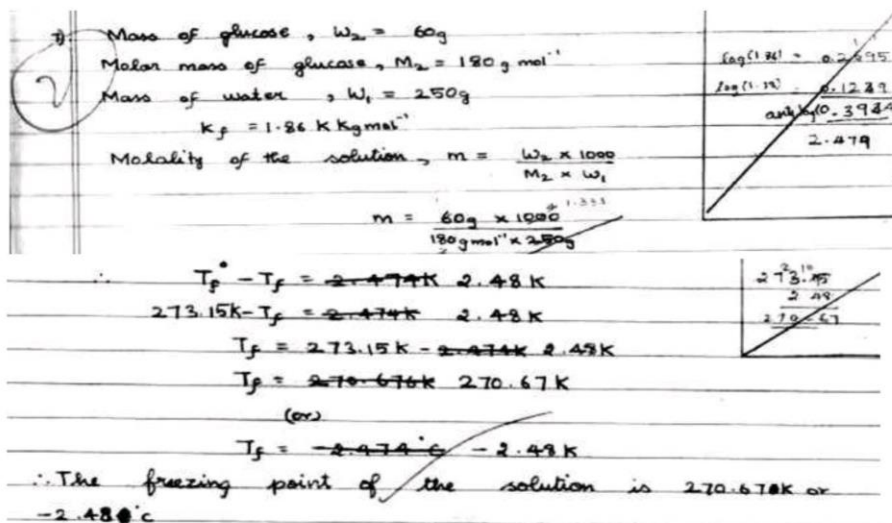 7) Mass of glucose, W₂ = 60g
Molar mass of glucose, M₂ = 180 g mol⁻¹
Mass of water, W₁ = 250g
K_f = 1.86 K Kg mol⁻¹
Molality of the solution, m = W₂ x 1000
M₂ x W₁
m = 60g x 1000
180 g mol⁻¹ x 250g
1.333
2
log(1.86) = 0.2695
log(1.33) 0.1239
antilog(0.3934
2.479
∴ T_f° - T_f = 2.474K 2.48 K
273.15K - T_f = 2.474K 2.48 K
T_f = 273.15K - 2.474K 2.48K
T_f = 270.676K 270.67K
(or)
T_f = -2.474°C - 2.48 K
∴ The freezing point of the solution is 270.670K or
-2.48 °C
273.15
2.48
270.67